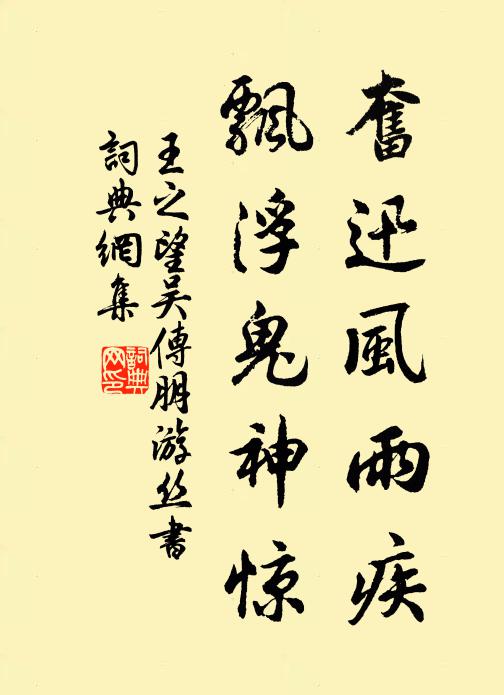 奮迅風雨疾
飄浮鬼神惊
王之望吴傅朋游丝書
詞典網集
詞典网印